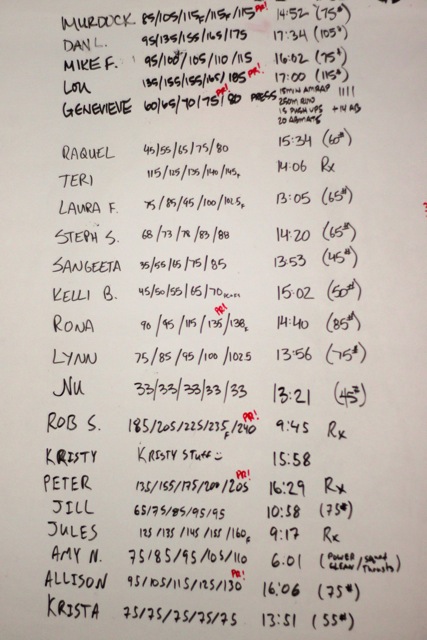 MURDOCK 85/105/115F/115F/115 PR! 14:52 (75#)
DAN L. 95/135/155/165/175 17:34 (105#)
MIKE F. 95/100/105/110/115 16:02 (75#)
LOU 135/155/155/165/185 PR! 17:00 (115#)
GENEVIEVE 60/65/70/75/80 PR! PRESS 15MIN AMRAP ||||
250M RUN
15 PUSH UPS +14 AB
20 ABMATS
RAQUEL 45/55/65/75/80 15:34 (60#)
TERI 115/125/135/140/145F 14:06 Rx
LAURA F. 75/85/95/100/102.5F 13:05 (65#)
STEPH S. 68/73/78/83/88 14:20 (65#)
SANGEETA 35/55/65/75/85 13:53 (45#)
KELLI B. 45/50/55/65/70 15:02 (50#)
RONA 90/95/115/135/138F PR! 14:40 (85#)
LYNN 75/85/95/100/102.5 13:56 (75#)
NU 33/33/33/33/33 13:21 (45#)
ROB S. 185/205/225/235F/240 PR! 9:45 Rx
KRISTY KRISTY STUFF 15:58
PETER 135/155/175/200/205 PR! 16:29 Rx
JILL 65/75/85/95/95 10:58 (75#)
JULES 125/135/145/155/160F 9:17 Rx
AMY N. 75/85/95/105/110 6.01 (POWER CLEAN/SQUAD Thrusts)
ALLISON 95/105/115/125/130 PR! 16:06 (75#)
KRISTA 75/75/75/75/75 13:51 (55#)